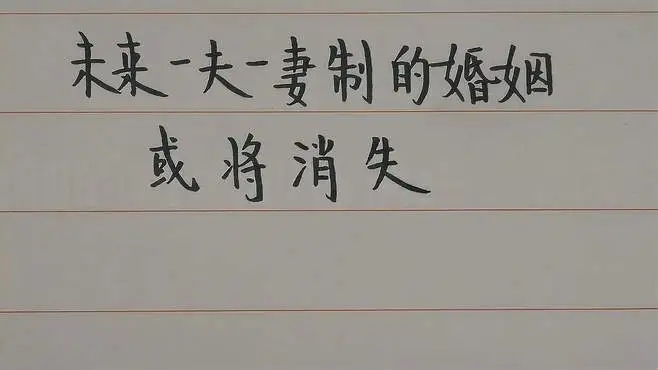 未来一夫一妻制的婚姻
或将消失